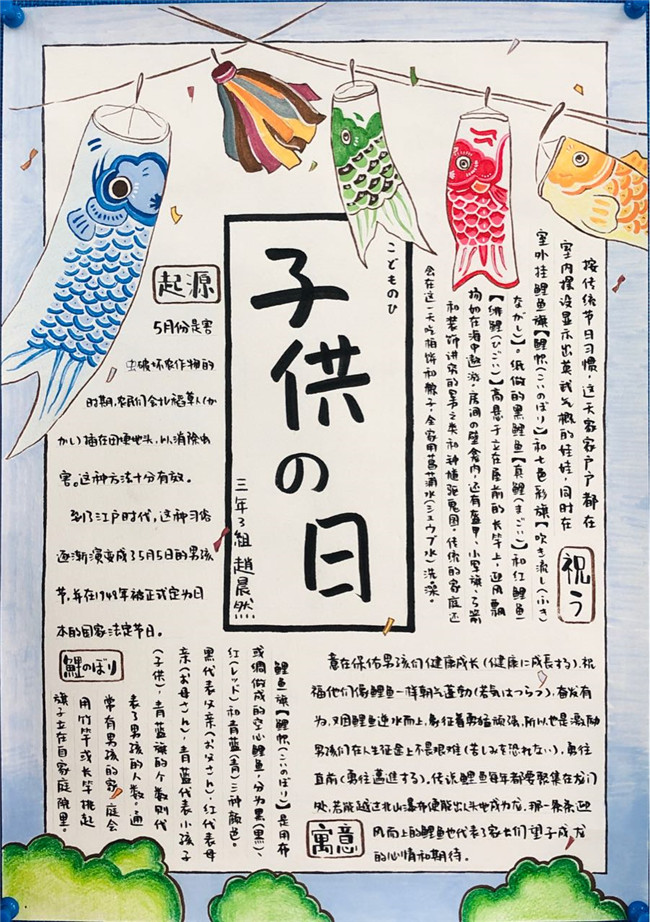 子供の日
こどものひ
三年3組 趙晨然
起源
5月份是害
虫破坏农作物的
时期,农民们会扎稻草人(か
かし)插在田埂地头,以消除虫
害。这种方法十分有效。
到了江户时代,这种习俗
逐渐演变成了5月5日的男孩
节,并在1948年被正式定为日
本的国家法定节日。
祝う
按传统节日习惯,这天家家户户都在
室内摆设显示出英武气概的娃娃,同时在
室外挂鲤鱼旗【鯉帜(こいのぼり)】和七色彩旗【吹き流し(ふき
ながし)】。纸做的黑鲤鱼【真鯉(まごい)】和红鲤鱼
【緋鯉(ひごい)】高悬于立在屋前的长竿上,迎风飘
扬如在海中遨游。房间的壁龛内,还有盔甲、小军旗、弓箭
和装饰讲究的吊之类和钟馗驱鬼图。传统的家庭还
会在这一天吃柏饼和粽子,全家用菖蒲水(ショウブ水)洗澡。
鯉のぼり
鲤鱼旗【鯉帜(こいのぼり)】是用布
或绸做成的空心鲤鱼,分为黑(黒)、
红(レッド)和青蓝(青)三种颜色。
黑代表父亲(お父さん),红代表母
亲(お母さん),青蓝代表小孩子
(子供),青蓝旗的个数则代
表了男孩的人数。通
常有男孩的家庭会
用竹竿或长竿挑起
旗子立在自家庭院里。
寓意
意在保佑男孩们健康成长(健康に成長する),祝
福他们像鲤鱼一样朝气蓬勃(若気はつらつ),奋发有
为。又因鲤鱼逆水而上,象征着勇猛顽强,所以也是激励
男孩们在人生征途上不畏艰难(苦しみを恐れない),勇往
直前(勇往邁進する)。传说鲤鱼每年都要聚集在龙门
处,若能越过北山瀑布便脱出人头地成为龙。那一条条迎
风而上的鲤鱼也代表了家长们望子成龙
的心情和期待。